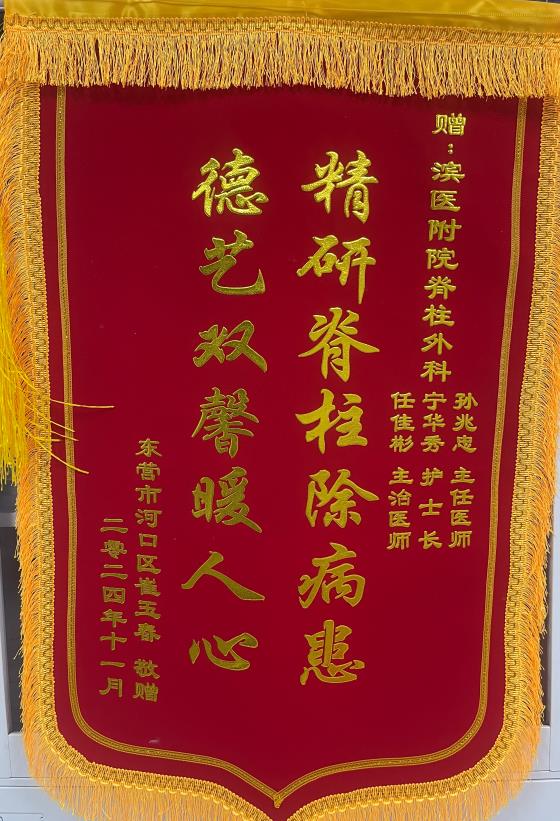 赠：滨医附院脊柱外科
孙兆忠 主任医师
宁华秀 护士长
任佳彬 主治医师
精研脊柱除病患
德艺双馨暖人心
东营市河口区崔玉春 敬赠
二零二四年十一月